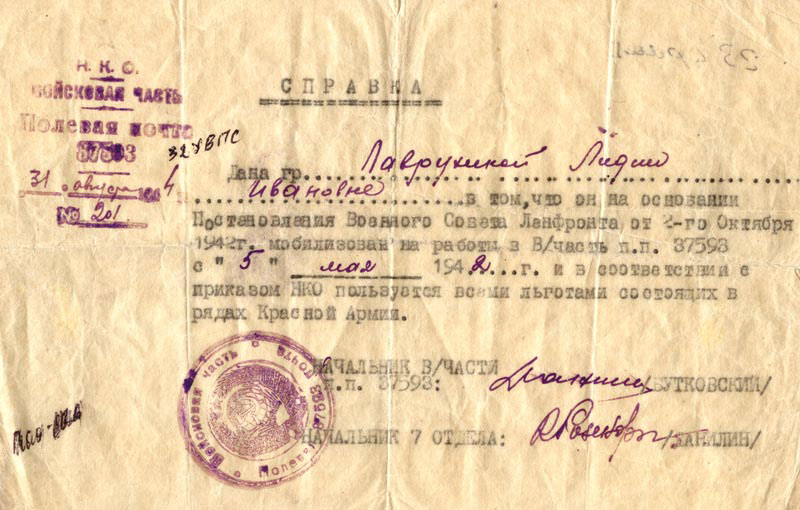 Н. К. О.
ВОЙСКОВАЯ ЧАСТЬ
Полевая почта
37593
32 УВПС
31 августа 194
№ 201.
СПРАВКА
Дана гр. Лаврухиной Лидии
Ивановне в том, что он на основании
Постановления Военного Совета Ленфронта от 2-го Октября
1942г. мобилизован на работы в В/часть п.п. 37593
с " 5 " мая 1942...г. и в соответствии с
приказом НКО пользуется всеми льготами состоящих в
рядах Красной Армии.
НАЧАЛЬНИК В/ЧАСТИ
п.п. 37593: /БУТКОВСКИЙ/
НАЧАЛЬНИК 7 ОТДЕЛА: /ДАНИЛИН/
Войсковая часть Полевая почта 37593